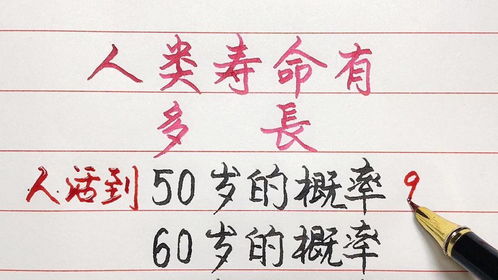 人类寿命有
多長
人活到50岁的概率9
60岁的概率